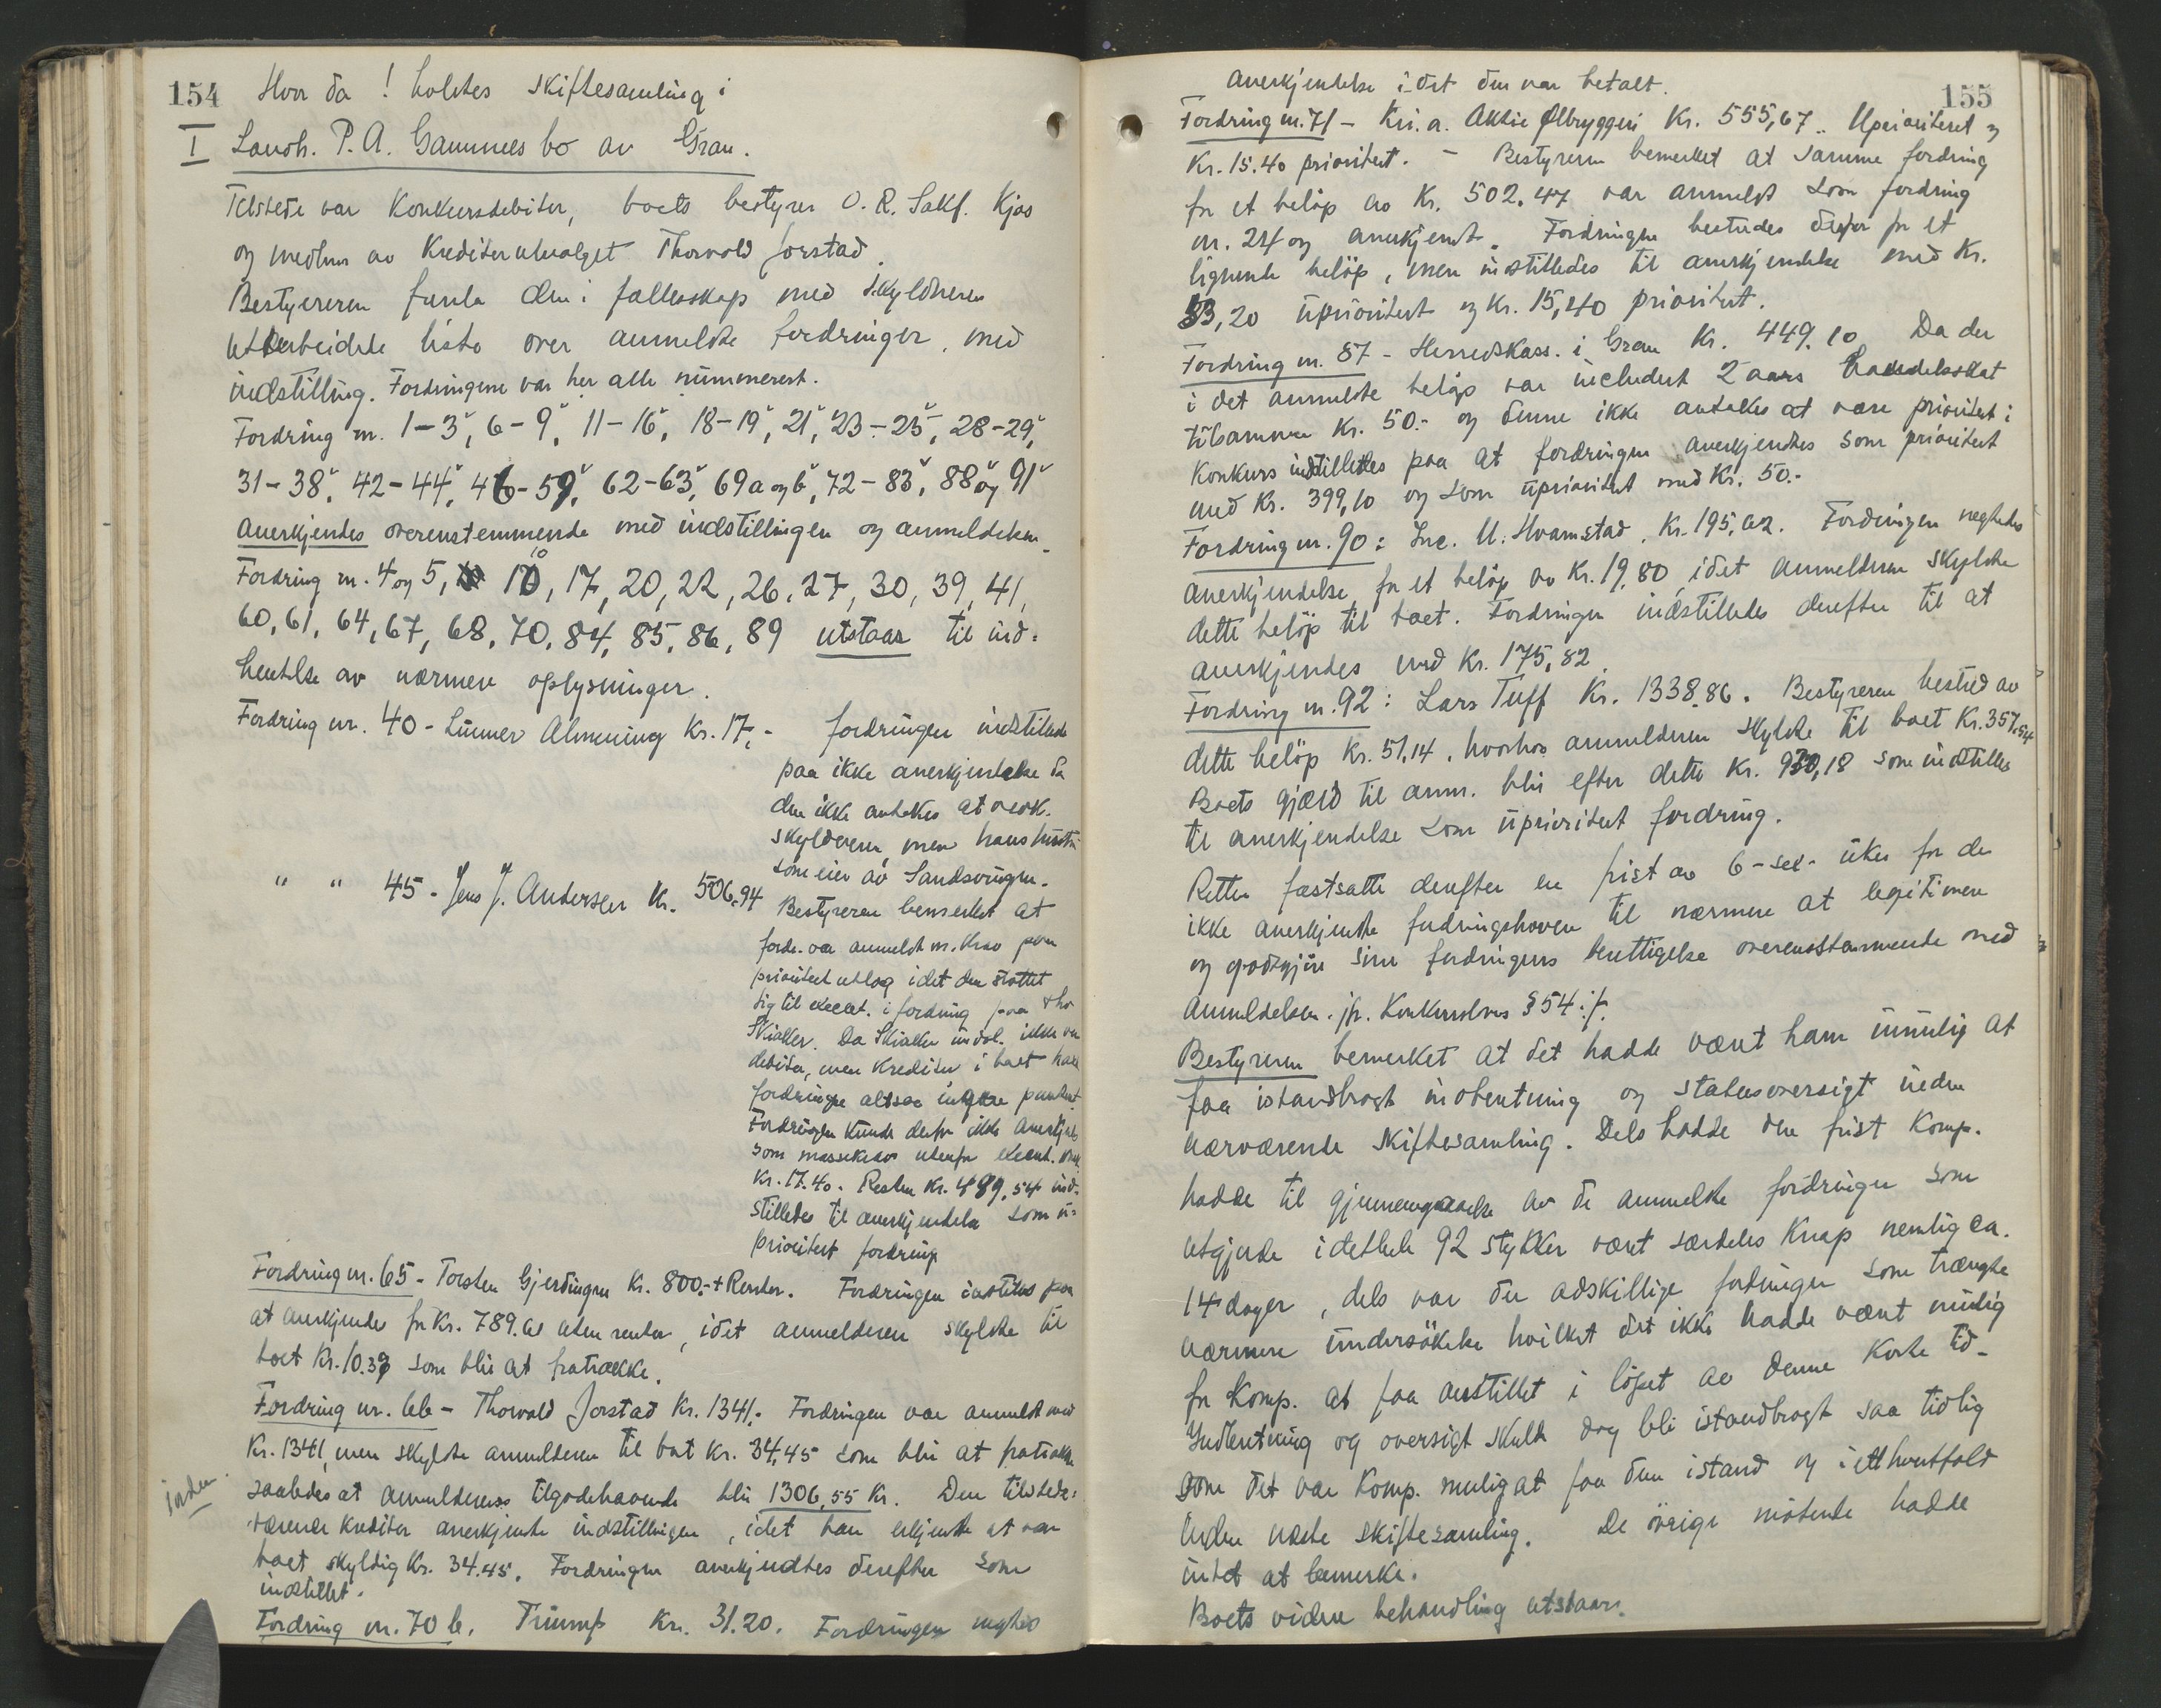 154
Hvor da! holdtes skiftesamling i
I Landh. P. A. Gamnes bo av Gran.
Tilstede var Konkursdebitor, boets bestyrer O. R. Sakf. Kjos
og medlem av Kreditorutvalget Thorvald Jorstad.
Bestyreren den i fællesskap med skyldneren
utarbeidede liste over anmeldte fordringer, med
indstilling. Fordringene var her alle nummerert.
Fordring nr. 1-3, 6-9, 11-16, 18-19, 21, 23-25, 28-29,
31-38, 42-44, 46-59, 62-63, 69a og b, 72-83, 88 og 91
anerkjendes overenstemmende med indstillingen og anmeldelsen.
Fordring nr. 4 og 5, 10, 17, 20, 22, 26, 27, 30, 39, 41,
60, 61, 64, 67, 68, 70, 84, 85, 86, 89 utstaar til ind-
hentelse av nærmere oplysninger.
Fordring nr. 40 - Lunner Almenning Kr. 17,- fordringen indstilledes
paa ikke anerkjendelse da
den ikke antokes at vedk.
skyldneren, men hans hustru
som eier av Sandsvingen.
" " 45 - Jens J. Andersen Kr. 506.94 Bestyreren bemerket at
fordr. var anmeldt m. krav paa
prioritert utlæg idet den støttet
sig til execut. i fordring paa
Skiaker. Da Skiaker ikke var
debitor, men kreditor i boet hadde
fordringen altsaa ingen
Fordringen kunde derfor ikke anerkjendes
som massekrav utenfor
Kr. 17.40. Resten Kr. 489,54 ind-
stilledes til anerkjendelse som u-
prioritert fordring
Fordring nr. 65 - Torsten Gjerdingen Kr. 800,- + Renter. Fordringen indstilles paa
at anerkjendes for Kr. 789.61 uten renter, idet anmelderen skyldte til
boet Kr. 10.39 som blir at fratrække.
Fordring nr. 66 - Thorvald Jorstad Kr. 1341,- Fordringen var anmeldt med
Kr. 1341, men skyldte anmelderen til boet Kr. 34,45 som blir at fratrække
saaledes at anmelderens tilgodehavende blir 1306,55 Kr. Den tilstede-
værende kreditor anerkjendte indstillingen, idet han erkjendte at være
boet skyldig Kr. 34.45. Fordringen anerkjendtes derefter som
indstillet.
Fordring nr. 70 b. Triumf Kr. 31.20. Fordringen negtes
155
anerkjendelse i det den var betalt.
Fordring nr. 71 - Kr.a. Aktie Ølbryggeri Kr. 555,67. Uprioriteret og
Kr. 15.40 prioritert. - Bestyreren bemerket at samme fordring
for et beløp av Kr. 502.47 var anmeldt som fordring
nr. 24 og anerkjendt. Fordringen bestredes derfor for et
lignende beløp, men indstilledes til anerkjendelse med Kr.
53,20 uprioritert og Kr. 15,40 prioritert.
Fordring nr. 87 - Herredskass. i Gran Kr. 449.10 Da der
i det anmeldte beløp var includert 2 aars handelsskat
tilsammen Kr. 50.- og denne ikke antokes at være prioritert i
Konkurs indstilledes paa at fordringen anerkjendtes som prioritert
med Kr. 399,10 og som uprioritert med Kr. 50.-
Fordring nr. 90: Hvamstad. Kr. 195,62. Fordringen negtedes
anerkjendelse for et beløp av Kr. 19.80, idet anmelderen skyldte
dette beløp til boet. Fordringen indstilledes derefter til at
anerkjendes med Kr. 175,82.
Fordring nr. 92: Lars Tuff Kr. 1338.86. Bestyreren bestred av
dette beløp Kr. 51.14, hvorhos anmelderen skyldte til boet Kr. 357.54
Boets gjæld til anm. blir efter dette Kr. 930,18 som indstilles
til anerkjendelse som uprioritert fordring.
Retten fastsatte derefter en frist av 6 -sex- uker for de
ikke anerkjendte fordringshavere til nærmere at legitimere
og godtgjøre sine fordringers berettigelse overensstemmende med
anmeldelsen. jfr. Konkurslovens § 54.
Bestyreren bemerket at det hadde vært ham umulig at
faa istandbragt indberetning og statusoversigt inden
nærværende skiftesamling. Dels hadde den frist Komp.
hadde til gjennemgaaelse av de anmeldte fordringer som
utgjorde idethele 92 stykker vært særdeles knap nemlig ca.
14 dager, dels var der adskillige fordringer som trængte
nærmere undersøkelse hvilket det ikke hadde vært mulig
for Komp. at faa anstillet i løpet av denne korte tid.
Indberetning og oversigt skulde dog bli istandbragt saa tidlig
som det var Komp. mulig at faa den istand og i ethvertfald
inden næste skiftesamling. De øvrige møtende hadde
intet at bemerke.
Boets videre behandling utstaar.